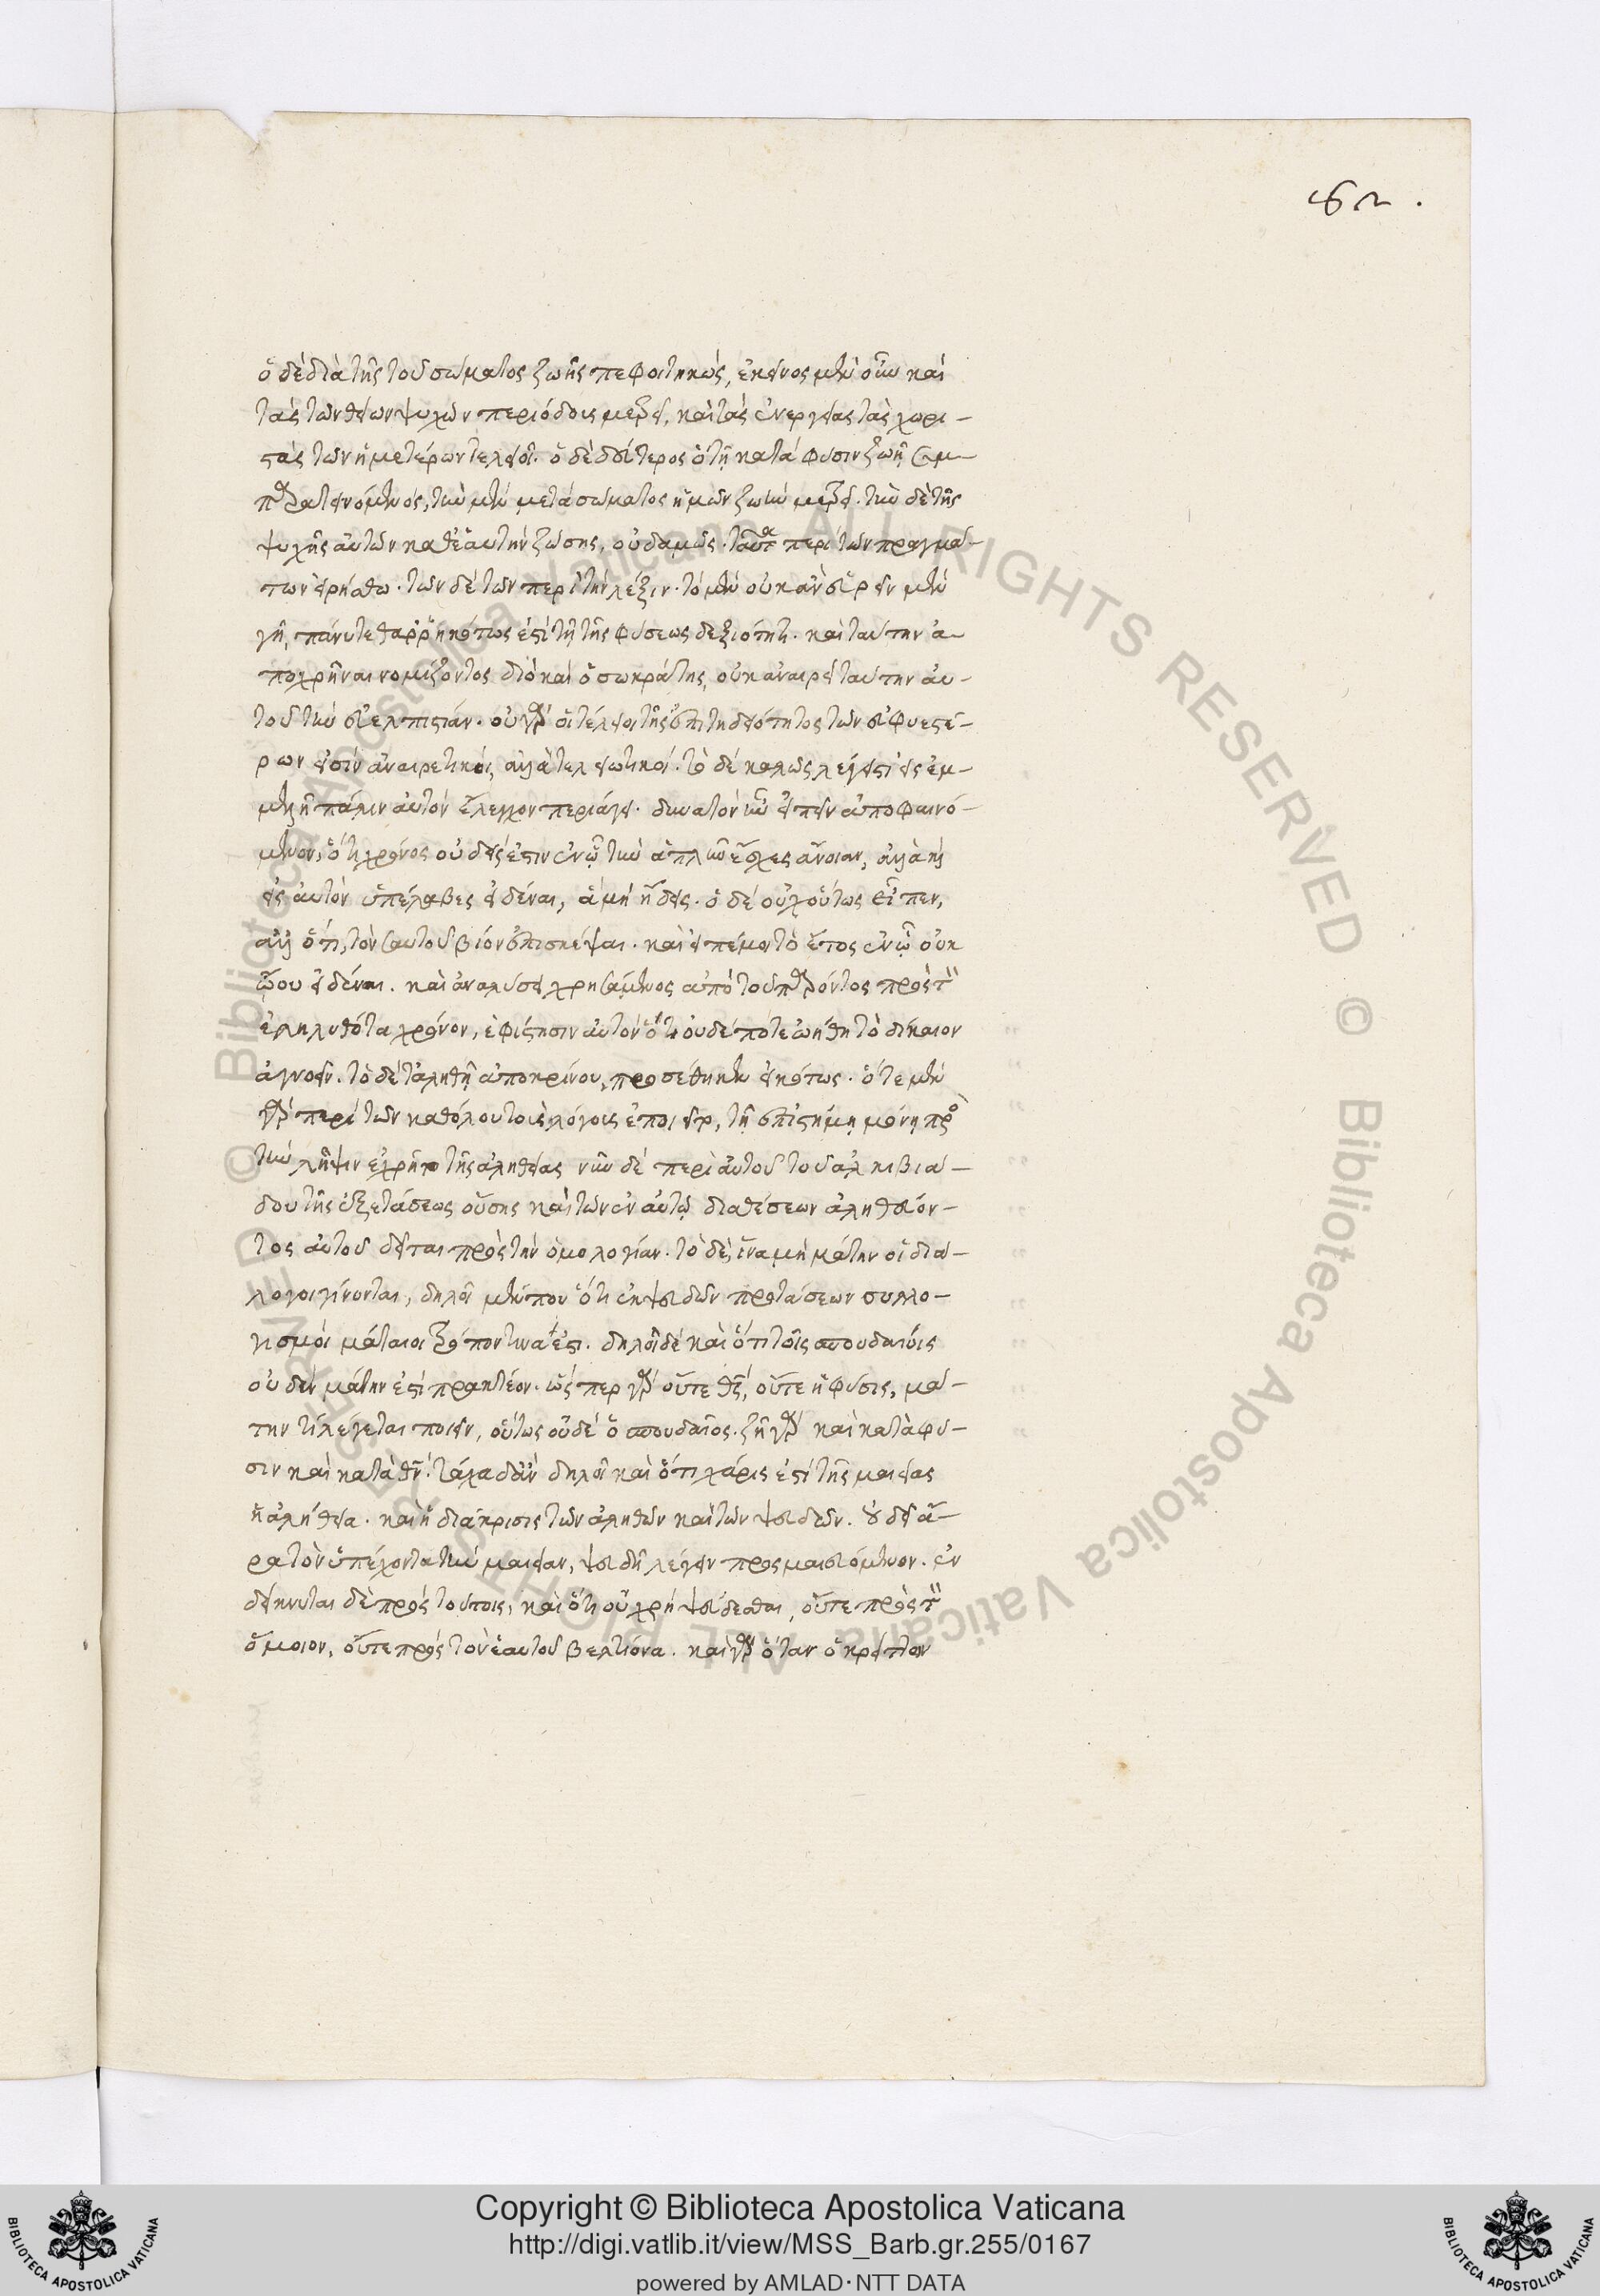 82.
ὁ δὲ διὰ τῆς τοῦ σώματος ζωῆς πεφοιτηκώς, ἐκεῖνος μὲν οὖν καὶ
τὰς τῶν θείων ψυχῶν περιόδους μετρεῖ, καὶ τὰς ἐνεργείας τὰς χωρι-
στὰς τῶν ἡμετέρων τελειοῖ. ὁ δὲ δεύτερος ὁ τῇ κατὰ φύσιν ζωῇ συμ-
παρατεινόμενος, τὴν μὲν μετὰ σώματος ἡμῶν ζωὴν μετρεῖ. τὴν δὲ τῆς
ψυχῆς αὐτῶν καθ' ἑαυτὴν ζώσης, οὐδαμῶς. ταῦτα περὶ τῶν πραγμά-
των εἰρήσθω. τῶν δὲ τῶν περὶ τὴν λέξιν. τὸ μὲν οὐκ ἂν εὑρεῖν μὲν
γῆ, πάνυ τεθαρρηκότως ἐπὶ τῇ τῆς φύσεως δεξιότητι. καὶ ταύτην ἀ-
ποχρῆναι νομίζοντος διὸ καὶ ὁ σωκράτης, οὐκ ἀναιρεῖ ταύτην αὐ-
τοῦ τὴν εὐελπιστίαν. οὐ γὰρ οἱ τέλειοι τῆς ἐπιτηδειότητος τῶν εὐφυεστέ-
ρων εἰσὶν ἀναιρετικοί, ἀλλὰ τελειωτικοί. τὸ δὲ καλῶς λέγεις εἰς ἐμ-
μελῆ πάλιν αὐτὸν ἔλεγχον περιάγει. δυνατὸν ἦν εἰπεῖν ἀποφαινό-
μενον, ὅτι χρόνος οὐδείς ἐστιν ἐν ᾧ τὴν ἁπλῆν ἔσχες ἄνοιαν, ἀλλὰ καὶ
εἰς αὐτὸν ὑπέλαβες εἰδέναι, ἃ μὴ ᾔδεις. ὁ δὲ οὐχ οὕτως εἶπεν,
ἀλλ' ὅτι, τὸν σαυτοῦ βίον ἐπισκέψαι. καὶ εἰπέ μοι τὸ ἔτος ἐν ᾧ οὐκ
ᾤου εἰδέναι. καὶ ἀναλύσει χρησάμενος ἀπὸ τοῦ παρόντος πρὸς τὸν
ἐληλυθότα χρόνον, ἐφίστησιν αὐτὸν ὅτι οὐδέποτε ᾠήθη τὸ δίκαιον
ἀγνοεῖν. τὸ δὲ τἀληθῆ ἀποκρίνου, προσέθηκεν εἰκότως. ὅτε μὲν
γὰρ περὶ τῶν καθόλου τοὺς λόγους ἐποιεῖτο, τῇ ἐπιστήμῃ μόνῃ πρὸς
τὴν λῆψιν ἐχρῆτο τῆς ἀληθείας νῦν δὲ περὶ αὐτοῦ τοῦ ἀλκιβιά-
δου τῆς ἐξετάσεως οὔσης καὶ τῶν ἐν αὐτῷ διαθέσεων ἀληθεύον-
τος αὐτοῦ δεῖται πρὸς τὴν ὁμολογίαν. τὸ δὲ, ἵνα μὴ μάτην οἱ διά-
λογοι γίνονται, δηλοῖ μέν που ὅτι ἐκ ψευδῶν προτάσεων συλλο-
γισμοὶ μάταιοι τρόπον τινά εἰσι. δηλοῖ δὲ καὶ ὅτι τοῖς σπουδαίοις
οὐδὲν μάτην ἐστὶ πρακτέον. ὥσπερ γὰρ οὔτε θεός, οὔτε ἡ φύσις, μά-
την τι λέγεται ποιεῖν, οὕτως οὐδὲ ὁ σπουδαῖος. ζῇ γὰρ καὶ κατὰ φύ-
σιν καὶ κατὰ θεόν. τάχα δ' ἂν δηλοῖ καὶ ὅτι χάρις ἐστὶ τῆς μαιείας
ἡ ἀλήθεια. καὶ ἡ διάκρισις τῶν ἀληθῶν καὶ τῶν ψευδῶν. οὐ δεῖ ἄ-
ρα τὸν ὑπέχοντα τὴν μαιείαν, ψευδῆ λέγειν πρὸς μαιευόμενον. ἐν
δείκνυται δὲ πρὸς τούτοις, καὶ ὅτι οὐ χρὴ ψεύδεσθαι, οὔτε πρὸς τὸν
ὅμοιον, οὔτε πρὸς τὸν ἑαυτοῦ βελτίονα. καὶ γὰρ ὅταν ὁ κρείττων
© Biblioteca Apostolica Vaticana ALL RIGHTS RESERVED
Copyright © Biblioteca Apostolica Vaticana
http://digi.vatlib.it/view/MSS_Barb.gr.255/0167
powered by AMLAD·NTT DATA
BIBLIOTECA APOSTOLICA VATICANA
BIBLIOTECA APOSTOLICA VATICANA